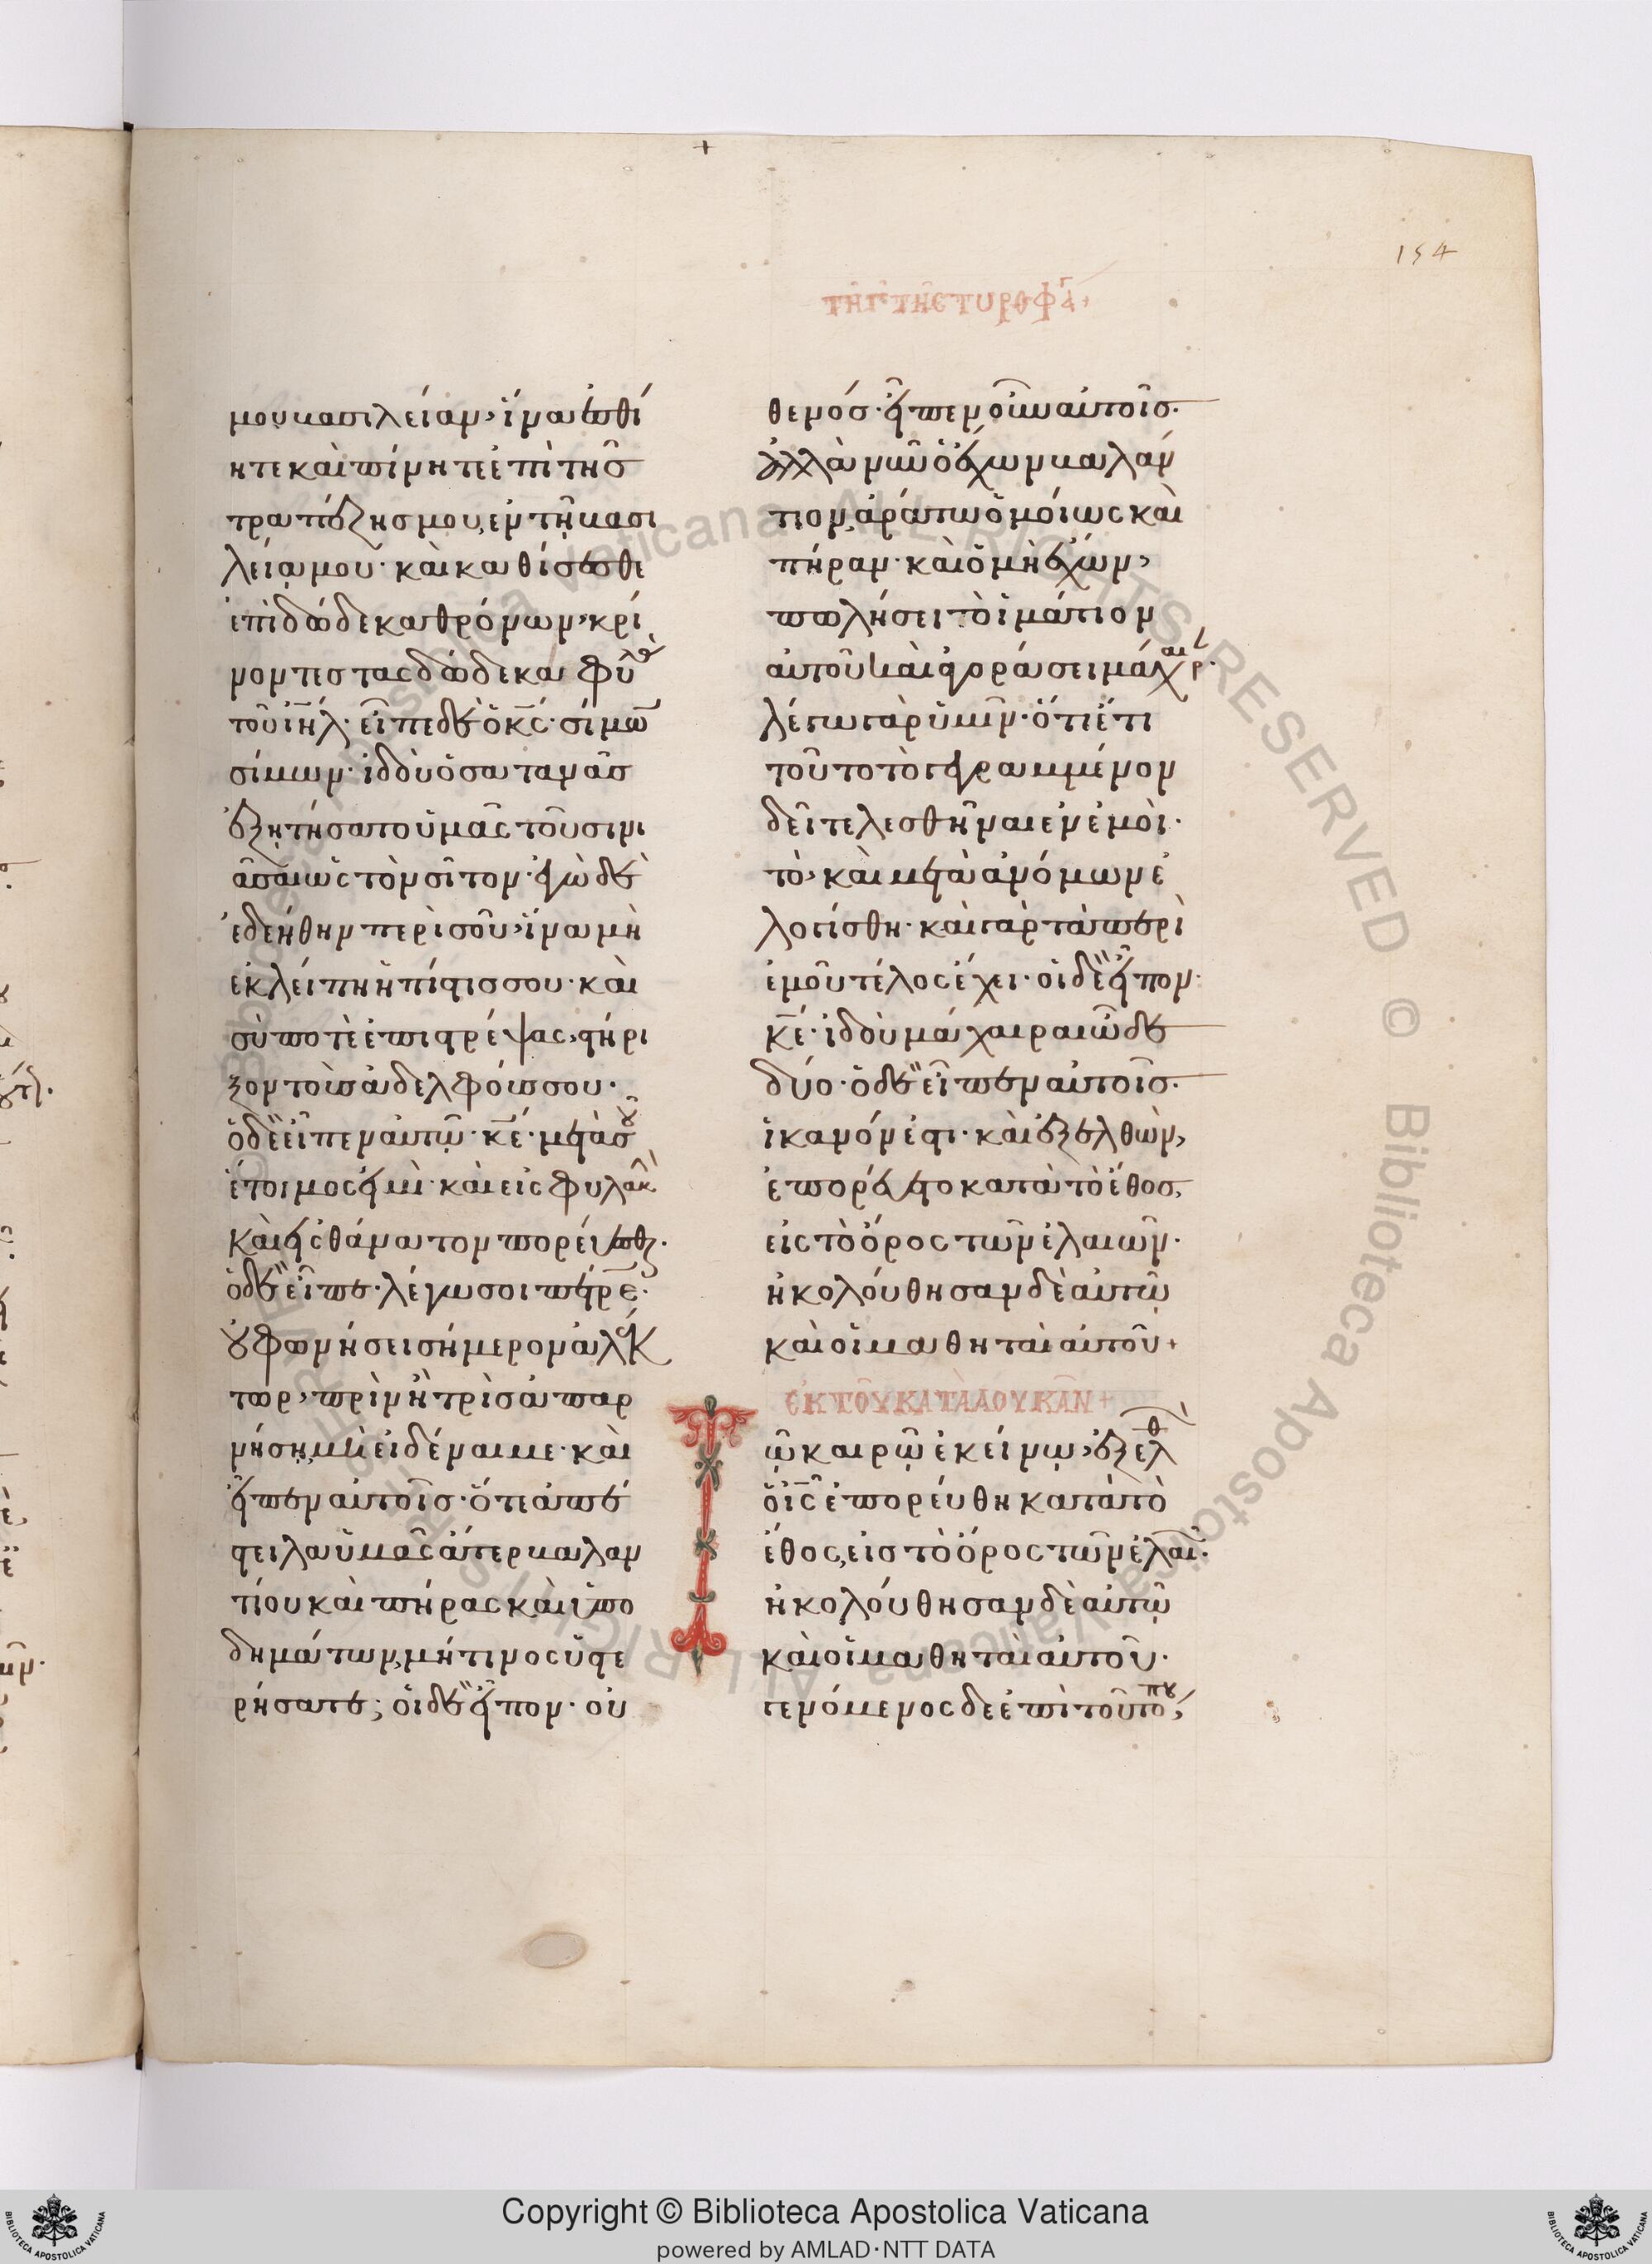 154
τῆ γ̄ τῆς τυροφά+
μου βασιλείαν, ἵνα ἐσθί
ητε καὶ πίνητε ἐπὶ τῆσ
τραπέζησ μου, ἐν τῆ βασι
λεία μου· καὶ καθίσεσθε
ἐπὶ δώδεκα θρόνων, κρί
νοντες τας δώδεκα φυλὰ
τοῦ ἰ̅η̅λ· εἶπε δὲ ὁ κ̅ς̅· σίμω
σίμων· ἰδοὺ ὁ σατανᾶσ
ἐξητήσατο ὑμᾶς τοῦ σινι
ᾶσαι ὡς τὸν σῖτον· ἐγὼ δὲ
ἐδεήθην περὶ σοῦ, ἵνα μὴ
ἐκλείπη ἡ πίστισ σου· καὶ
σὺ ποτὲ ἐπιστρέψας, στήρι
ξον τοὺσ ἀδελφούσ σου·
ὁ δὲ εἶπεν αὐτῶ· κ̅ε̅· μετὰ σοῦ
ἕτοιμος εἰμὶ· καὶ εἰς φυλακὴ
καὶ εἰς θάνατον πορεύεσθαι·
ὁ δὲ εἶπε· λέγω σοι πέτρε·
οὐ φωνήσει σήμερον ἀλέκ
τωρ, πρὶν ἢ τρὶσ ἀπαρ
νήση μὴ εἰδέναι με· καὶ
εἶπεν αὐτοῖσ· ὅτε ἀπέ
στειλα ὑμᾶς ἄτερ βαλαν
τίου καὶ πήρας καὶ ὑπο
δημάτων, μή τινος ὑστε
ρήσατε; οἱ δὲ εἶπον· οὐ
θενόσ· εἶπεν οὖν αὐτοῖσ·
ἀλλὰ νῦν ὁ ἔχων βαλάν
τιον, ἀράτω ὁμοίως καὶ
πήραν· καὶ ὁ μὴ ἔχων,
πωλήσει τὸ ἱμάτιον
αὐτοῦ καὶ ἀγοράσει μάχαιρ·
λέγω γὰρ ὑμῖν· ὅτι ἔτι
τοῦτο τὸ γεγραμμένον
δεῖ τελεσθῆναι ἐν ἐμοὶ·
τὸ, καὶ μετὰ ἀνόμων ἐ
λογίσθη· καὶ γὰρ τὰ περὶ
ἐμοῦ τέλος ἔχει· οἱ δὲ εἶπον·
κ̅ε̅· ἰδοὺ μάχαιραι ὧδε
δύο· ὁ δὲ εἶπεν αὐτοῖσ·
ἱκανόν ἐστι· καὶ ἐξελθὼν,
ἐπορεύετο κατὰ τὸ ἔθοσ,
εἰς τὸ ὄρος τῶν ἐλαιῶν·
ἠκολούθησαν δὲ αὐτῶ
καὶ οἱ μαθηταὶ αὐτοῦ+
ἐκ τοῦ κατὰ λουκᾶν+
Τῶ καιρῶ ἐκείνω, ἐξελθὼ
ὁ ι̅ς̅ ἐπορεύθη κατὰ τὸ
ἔθος, εἰσ τὸ ὄρος τῶν ἐλαι·
ἠκολούθησαν δὲ αὐτῶ
καὶ οἱ μαθηταὶ αὐτοῦ·
γενόμενος δὲ ἐπὶ τοῦ τόπου,
Copyright © Biblioteca Apostolica Vaticana
powered by AMLAD·NTT DATA